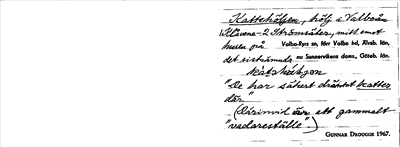 Kattehöljen, hölj i Valboån
Klavene-2 Strömsäter, mitt emot
husen på Valbo-Ryrs sn, förr Valbo hd, Älvsb. län,
det sistnämnda nu Sunnervikens doms., Göteb. län.
"De har säkert dränkt katter
där"
ett gammalt
"vadareställe")
GUNNAR DROUGGE 1967.